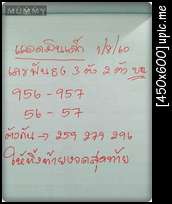 MUMMY
แดดสินเด้า 1/8/60
เลขฟันธง 3 ตัว 2 ตัว บน
956 - 957
56 - 57
ตัวกัน → 259 279 296
ให้ทิ้งท้ายงวดสุดท้าย
[450x600] upic.me